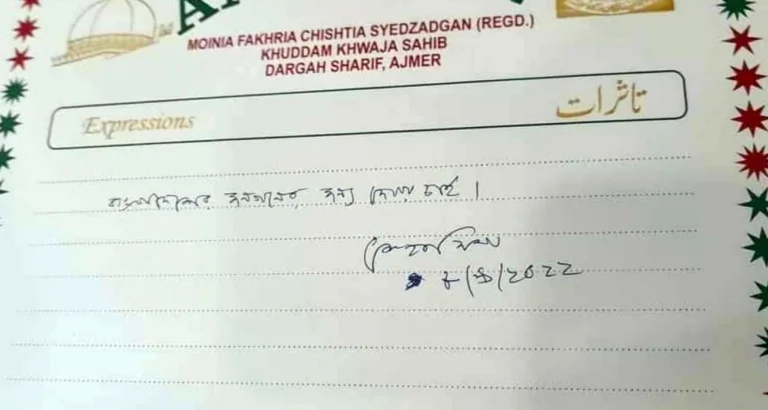 MOINIA FAKHRIA CHISHTIA SYEDZADGAN (REGD.)
KHUDDAM KHWAJA SAHIB
DARGAH SHARIF, AJMER
Expressions
تاثرات
বাংলাদেশের জনগনের জন্য দোয়া চাই।
২০২২